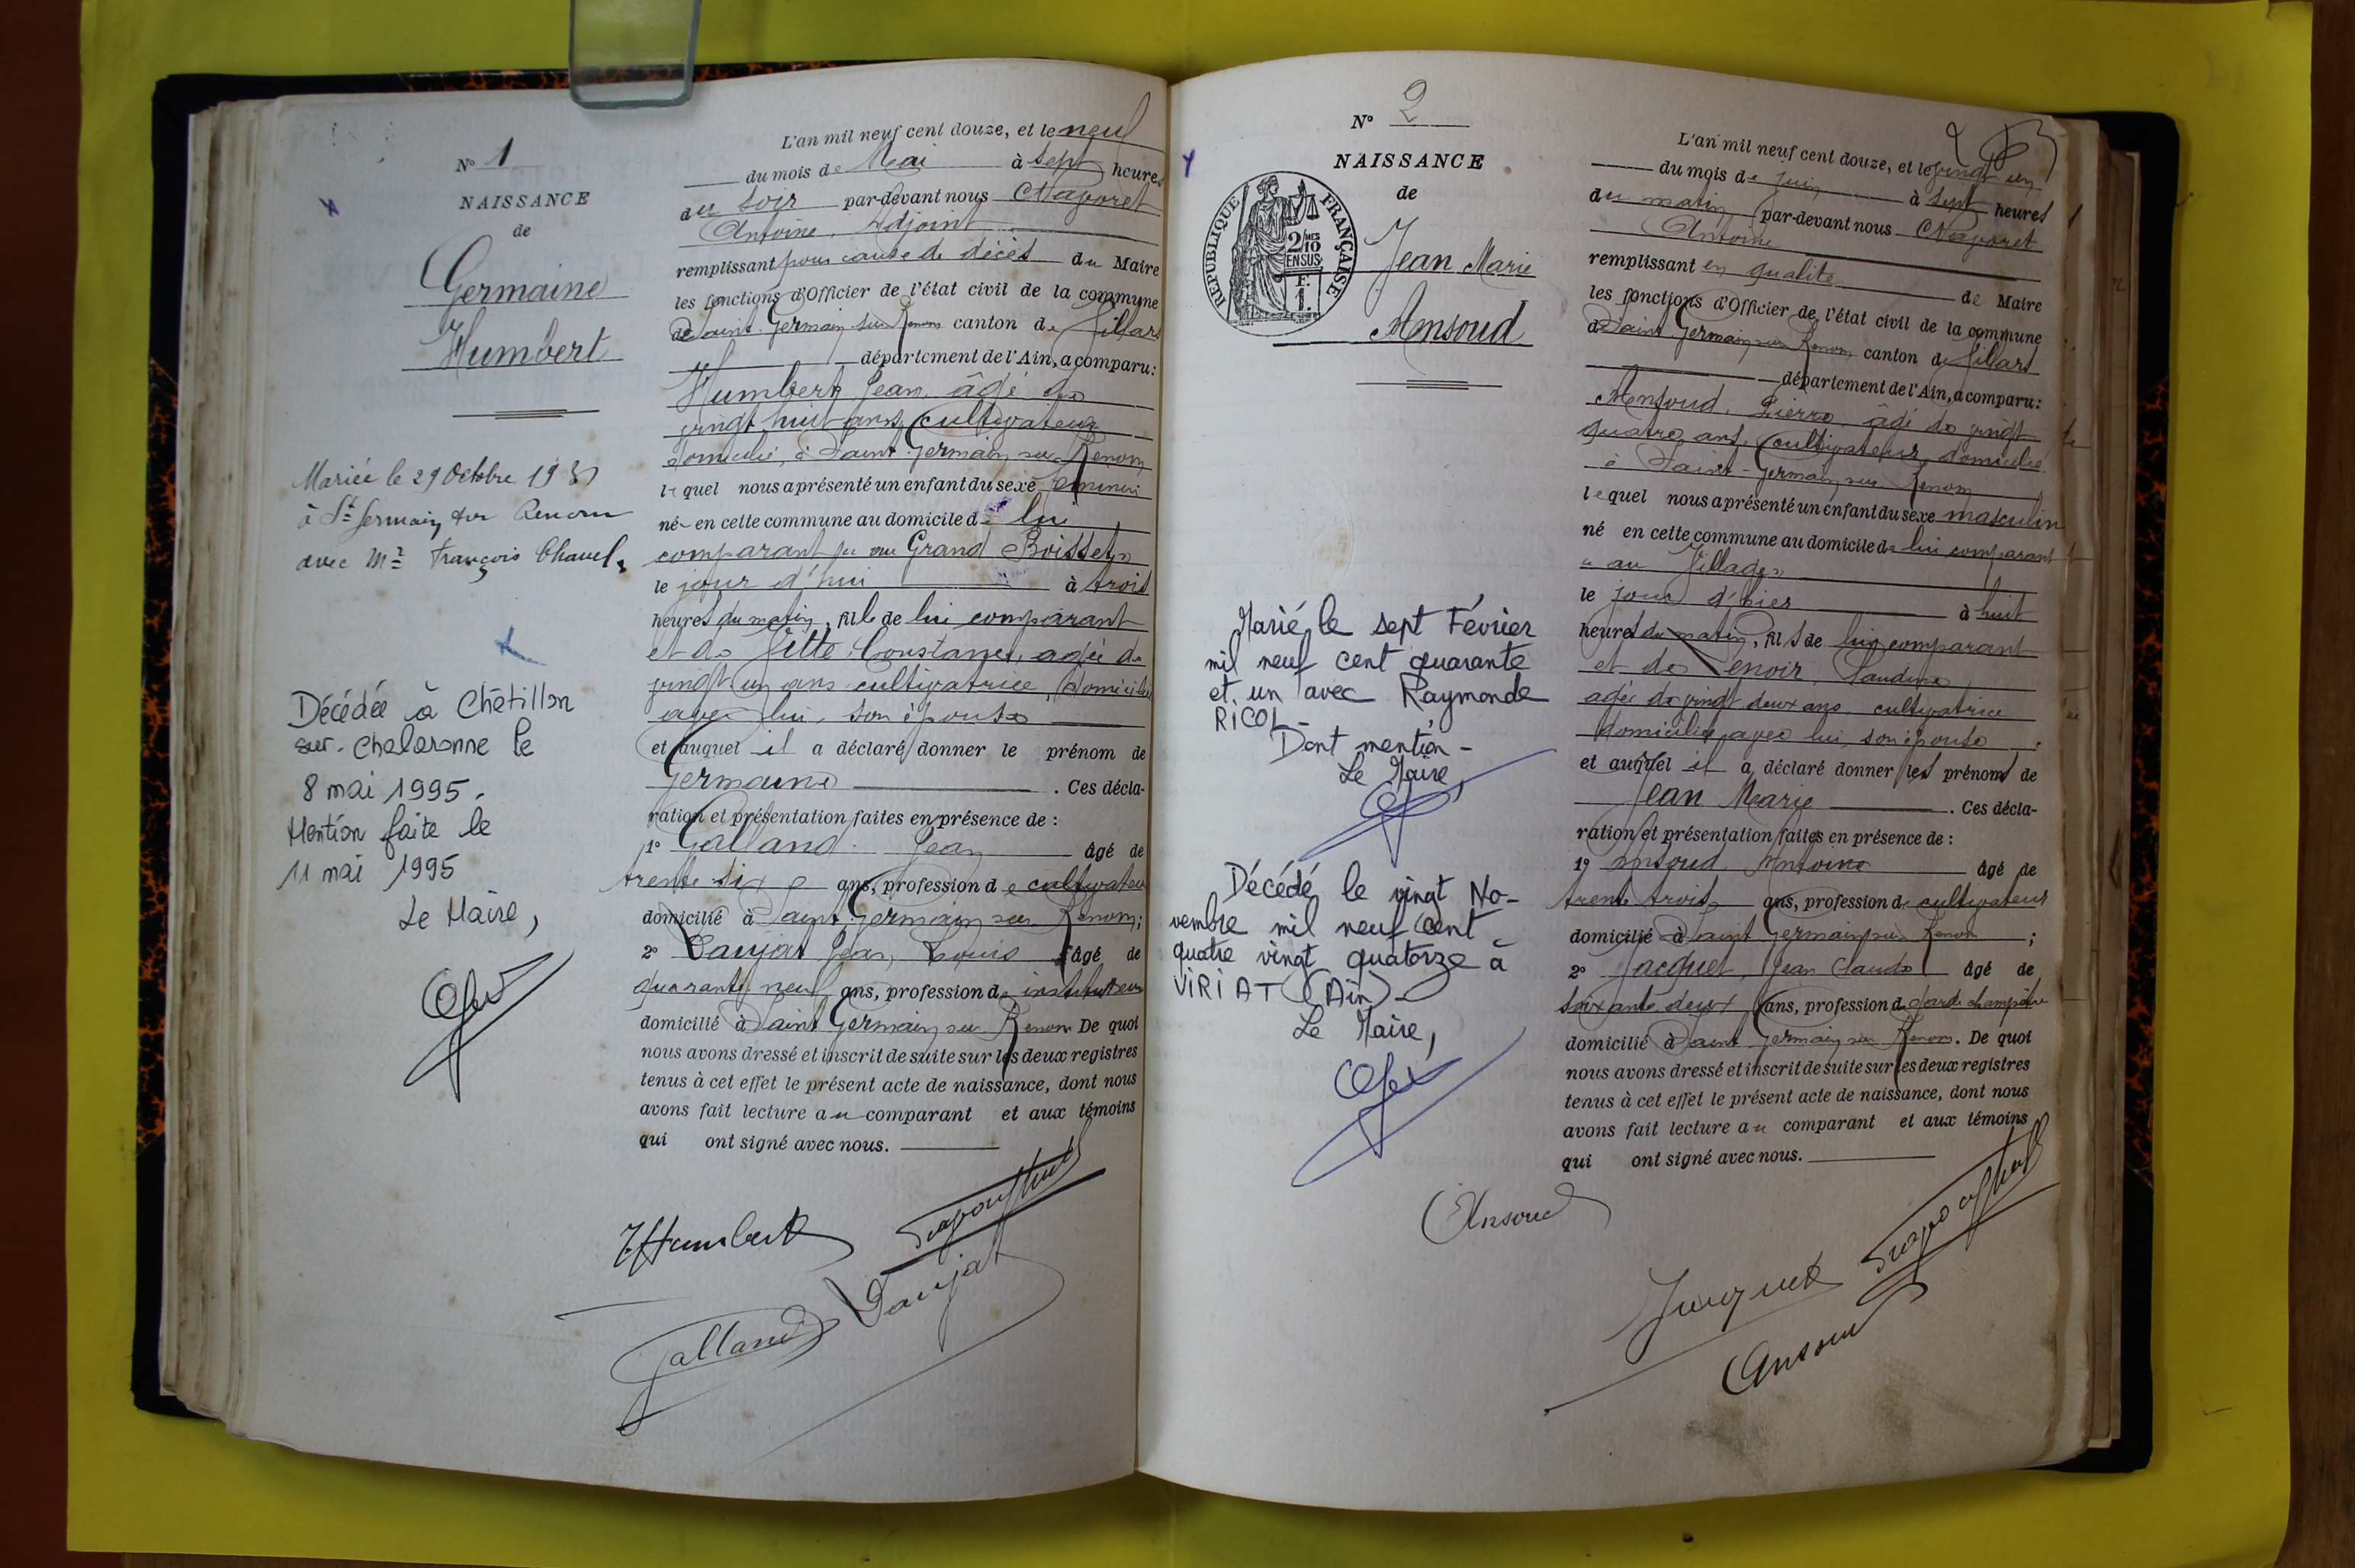 N° 1
NAISSANCE
de
Germaine
Humbert
Mariée le 29 Octobre 19
à St Germain sur Renom
avec Mr François Chanel
Décédée à Châtillon
sur-Chalaronne le
8 mai 1995.
Mention faite le
11 mai 1995
Le Maire,
L'an mil neuf cent douze, et le neuf
du mois de Mai à sept heures
du soir par-devant nous
Antoine, Adjoint
remplissant pour cause de décès du Maire
les fonctions d'Officier de l'état civil de la commune
de Saint Germain sur Renom canton de Villars
département de l'Ain, a comparu:
Humbert Jean, âgé de
vingt huit ans, cultivateur
domicilié à Saint Germain sur Renom
lequel nous a présenté un enfant du sexe féminin
né en cette commune au domicile de lui
comparant au Grand
le jour d'hui à trois
heures du matin, fille de lui comparant
et de Constance, agée de
vingt un ans cultivatrice, domiciliée
avec lui, son épouse
et auquel il a déclaré donner le prénom de
Germaine . Ces décla-
ration et présentation faites en présence de :
1° Galland Jean âgé de
trente six ans, profession de cultivateur
domicilié à Saint Germain sur Renom;
2° Daujat Jean Louis âgé de
quarante neuf ans, profession d'instituteur
domicilié à Saint Germain sur Renom De quoi
nous avons dressé et inscrit de suite sur les deux registres
tenus à cet effet le présent acte de naissance, dont nous
avons fait lecture au comparant et aux témoins
qui ont signé avec nous.
JHumbert
Daujat
Galland
N° 2
NAISSANCE
de
RÉPUBLIQUE FRANÇAISE
2/10
EN SUS
1 F.
Jean Marie
Ansoud
Marié le sept Février
mil neuf cent quarante
et un avec Raymonde
RICOL -
Dont mention -
Le Maire,
Décédé le vingt No-
vembre mil neuf cent
quatre vingt quatorze à
VIRIAT (Ain) -
Le Maire,
L'an mil neuf cent douze, et le vingt un
du mois de juin à sept heures
du matin par-devant nous
Antoine
remplissant en qualité de Maire
les fonctions d'Officier de l'état civil de la commune
de Saint Germain sur Renom canton de Villars
département de l'Ain, a comparu:
Ansoud, Pierre âgé de vingt
quatre ans, cultivateur, domicilié
à Saint-Germain sur Renom
lequel nous a présenté un enfant du sexe masculin
né en cette commune au domicile de lui comparant
au Village
le jour d'hier à huit
heures du matin, fils de lui comparant
et de Venoir, Claudine
agée de vingt deux ans, cultivatrice
domiciliée avec lui, son épouse
et auquel il a déclaré donner les prénoms de
Jean Marie . Ces décla-
ration et présentation faites en présence de :
1° Ansoud Antoine âgé de
trente trois ans, profession de cultivateur
domicilié à Saint Germain sur Renom ;
2° Jacquet, Jean Claude âgé de
soixante deux ans, profession de garde champêtre
domicilié à Saint Germain sur Renom. De quoi
nous avons dressé et inscrit de suite sur les deux registres
tenus à cet effet le présent acte de naissance, dont nous
avons fait lecture au comparant et aux témoins
qui ont signé avec nous.
Ansoud
Jacquet
Ansoud